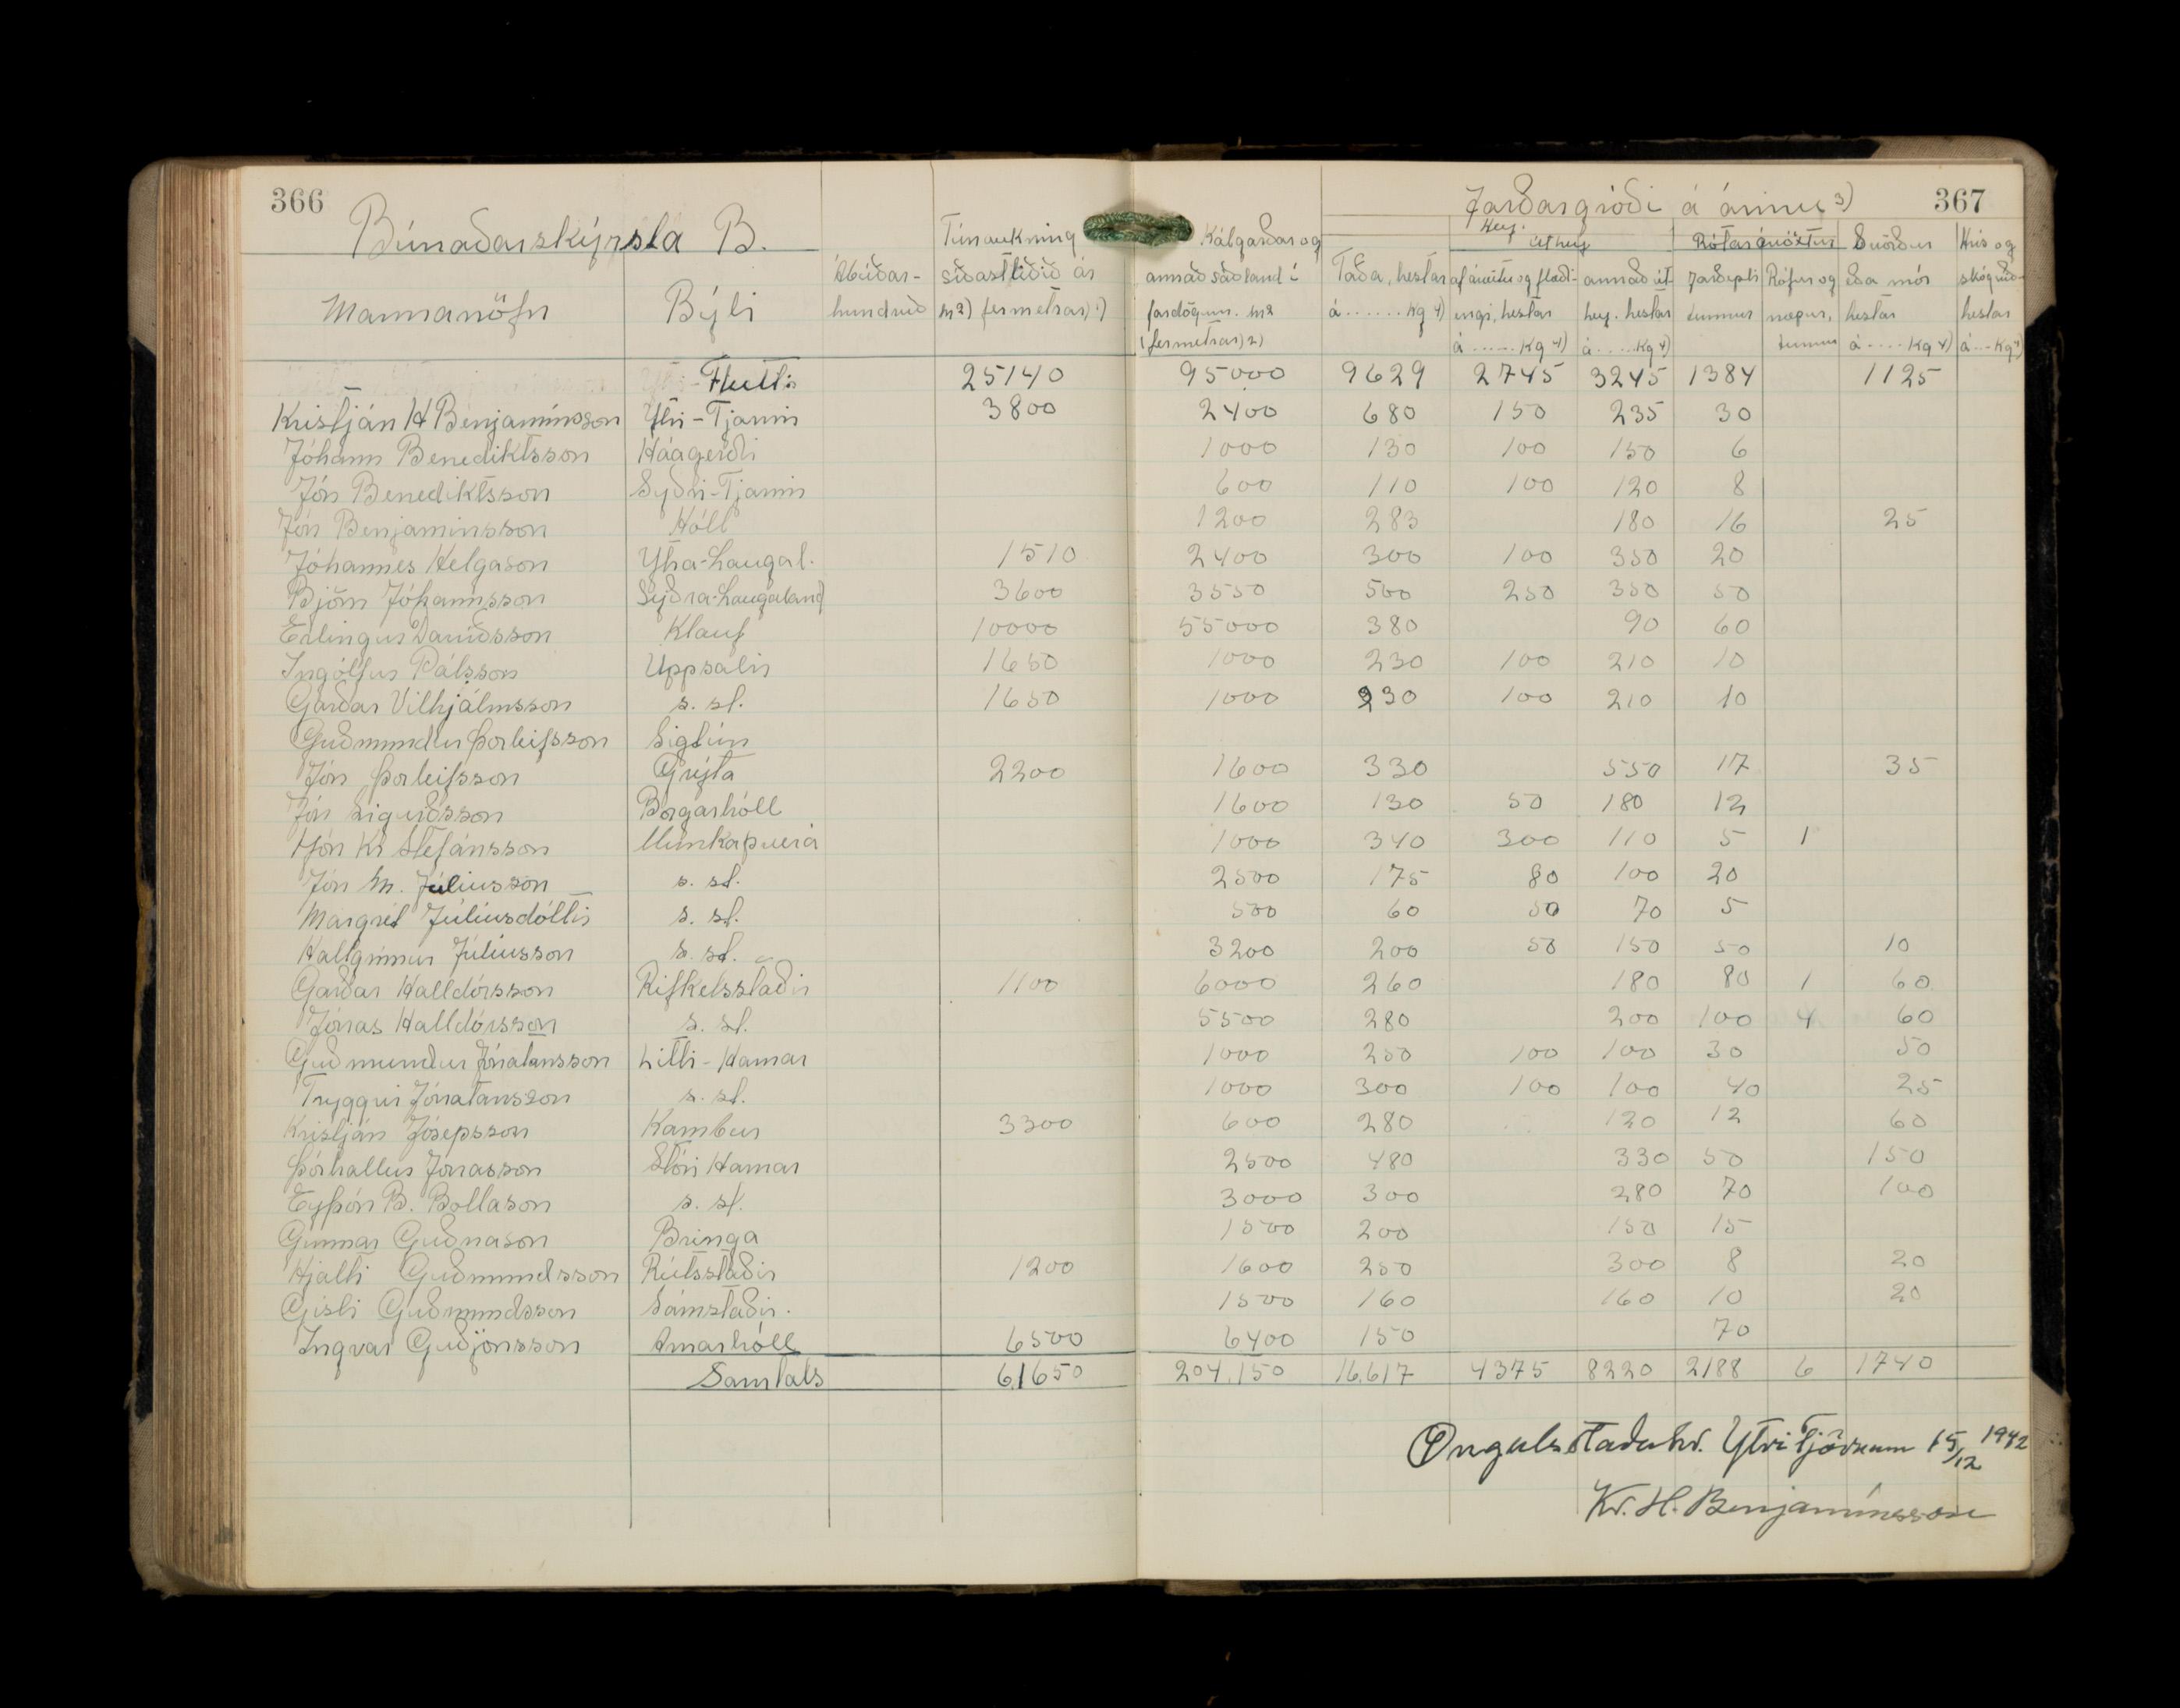 366
367
Búnaðarskýrsla B.
Jarðargróði á árinu 3)
Mannanöfn
Býli
Ábúðar-
hundruð
Túnaukning
síðastliðið ár
m2) fermetrar) 1)
Kálgarðar og
annað sáðland í
fardögum. m2
(fermetrar) 2)
Hey.
Taða, hestar
á ...... Kg 4)
Úthey
af áveitu og flæði-
engi, hestar
á ...... Kg 4)
annað út-
hey. hestar
á ..... Kg 4)
Rótarávöxtur
Jarðepli
tunnur
Rófur og
næpur,
tunnur
Svörður
eða mór
hestar
á ..... Kg 4)
Hrís og
skógvið-
hestar
á ... Kg 4)
Flutt: 25140 95000 9629 2745 3245 1384 1125
Kristján H Benjamínsson Ytri-Tjarnir 3800 2400 680 150 235 30
Jóhann Benediktsson Háagerði 1000 130 100 150 6
Jón Benediktsson Syðri-Tjarnir 600 110 100 120 8
Jón Benjamínsson Hóll 1200 283 180 16 25
Jóhannes Helgason Ytra-Laugal. 1510 2400 300 100 350 20
Björn Jóhannsson Syðra-Laugaland 3600 3550 500 250 350 50
Erlingur Davíðsson Klauf 10000 55000 380 90 60
Ingólfur Pálsson Uppsalir 1650 1000 230 100 210 10
Garðar Vilhjálmsson s. st. 1650 1000 230 100 210 10
Guðmundur Þorleifsson Sigtún
Jón Þorleifsson Grýta 2200 1600 330 550 17 35
Jón Sigurðsson Borgarhóll 1600 130 50 180 12
Jón Kr Stefánsson Munkaþverá 1000 340 300 110 5 1
Jón M. Júlíusson s. st. 2500 175 80 100 20
Margrét Júlíusdóttir s. st. 500 60 50 70 5
Hallgrímur Júlíusson s. st. 3200 200 50 150 50 10
Garðar Halldórsson Rifkelsstaðir 1100 6000 260 180 80 1 60
Jónas Halldórsson s. st. 5500 280 200 100 4 60
Guðmundur Jónatansson Litli-Hamar 1000 250 100 100 30 50
Tryggvi Jónatansson s. st. 1000 300 100 100 40 25
Kristján Jósepsson Kambur 3300 600 280 120 12 60
Þórhallur Jónasson Stóri Hamar 2500 480 330 50 150
Eyþór B. Bollason s. st. 3000 300 280 70 100
Gunnar Guðnason Bringa 1500 200 150 15
Hjalti Guðmundsson Rútsstaðir 1200 1600 250 300 8 20
Gísli Guðmundsson Sámstaðir. 1500 160 160 10 20
Ingvar Guðjónsson Arnarhóll 6500 6400 150 70
Samtals 61650 204.150 16.617 4375 8220 2188 6 1740
Öngulsstaðahr. Ytri Tjörnum 15/12 1942
Kr. H. Benjamínsson